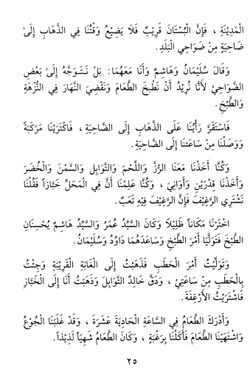 الْمَدِيْنَةِ ، فَإِنَّ الْبُسْتَانَ قَرِيْبٌ فَلَا يَضِيْعُ وَقْتُنَا فِي الذَّهَابِ إِلَىٰ
ضَاحِيَةٍ مِنْ ضَوَاحِي الْبَلَدِ.
وَقَالَ سُلَيْمَانُ وَهَاشِمٌ وَأَنَا مَعَهُمَا: بَلْ نَتَوَجَّهُ إِلَىٰ بَعْضِ
الضَّوَاحِيْ لِأَنَّا نُرِيْدُ أَنْ نَطْبَخَ الطَّعَامَ وَنَقْضِيَ النَّهَارَ فِي النُّزْهَةِ
وَالطَّبْخِ.
فَاسْتَقَرَّ رَأْيُنَا عَلَى الذَّهَابِ إِلَى الضَّاحِيَةِ ، فَاكْتَرَيْنَا مَرْكَبَةً
وَوَصَلْنَا مِنْ سَاعَتِنَا إِلَى الضَّاحِيَةِ.
وَكُنَّا أَخَذْنَا مَعَنَا الرُّزَّ وَاللَّحْمَ وَالتَّوَابِلَ وَالسَّمْنَ وَالْخُضَرَ
وَأَخَذْنَا قِدْرَيْنِ وَأَوَانِيَ ، وَكُنَّا عَلِمْنَا أَنَّ فِي الْمَحَلِّ خَبَّازاً فَقُلْنَا
نَشْتَرِي الرَّغِيْفَ فَإِنَّ الرَّغِيْفَ فِيْهِ تَعَبٌ.
اخْتَرْنَا مَكَاناً ظَلِيْلاً وَكَانَ السَّيِّدُ عُمَرُ وَالسَّيِّدُ هَاشِمٌ يُحْسِنَانِ
الطَّبْخَ فَتَوَلَّيَا أَمْرَ الطَّبْخِ وَسَاعَدَهُمَا دَاوُدُ وَسُلَيْمَانُ.
وَتَوَلَّيْتُ أَمْرَ الْحَطَبِ فَذَهَبْتُ إِلَى الْغَابَةِ الْقَرِيْبَةِ وَجِئْتُ
بِالْحَطَبِ مِنْ سَاعَتِيْ ، وَدَقَّ خَالِدٌ التَّوَابِلَ وَذَهَبْتُ أَنَا إِلَى الْخَبَّازِ
فَاشْتَرَيْتُ الْأَرْغِفَةَ.
وَأَدْرَكَ الطَّعَامُ فِي السَّاعَةِ الْحَادِيَةَ عَشْرَةَ ، وَقَدْ غَلَبَنَا الْجُوْعُ
وَاشْتَهَيْنَا الطَّعَامَ فَأَكَلْنَا بِرَغْبَةٍ ، وَكَانَ الطَّعَامُ شَهِيّاً لَذِيْذاً.
٢٥